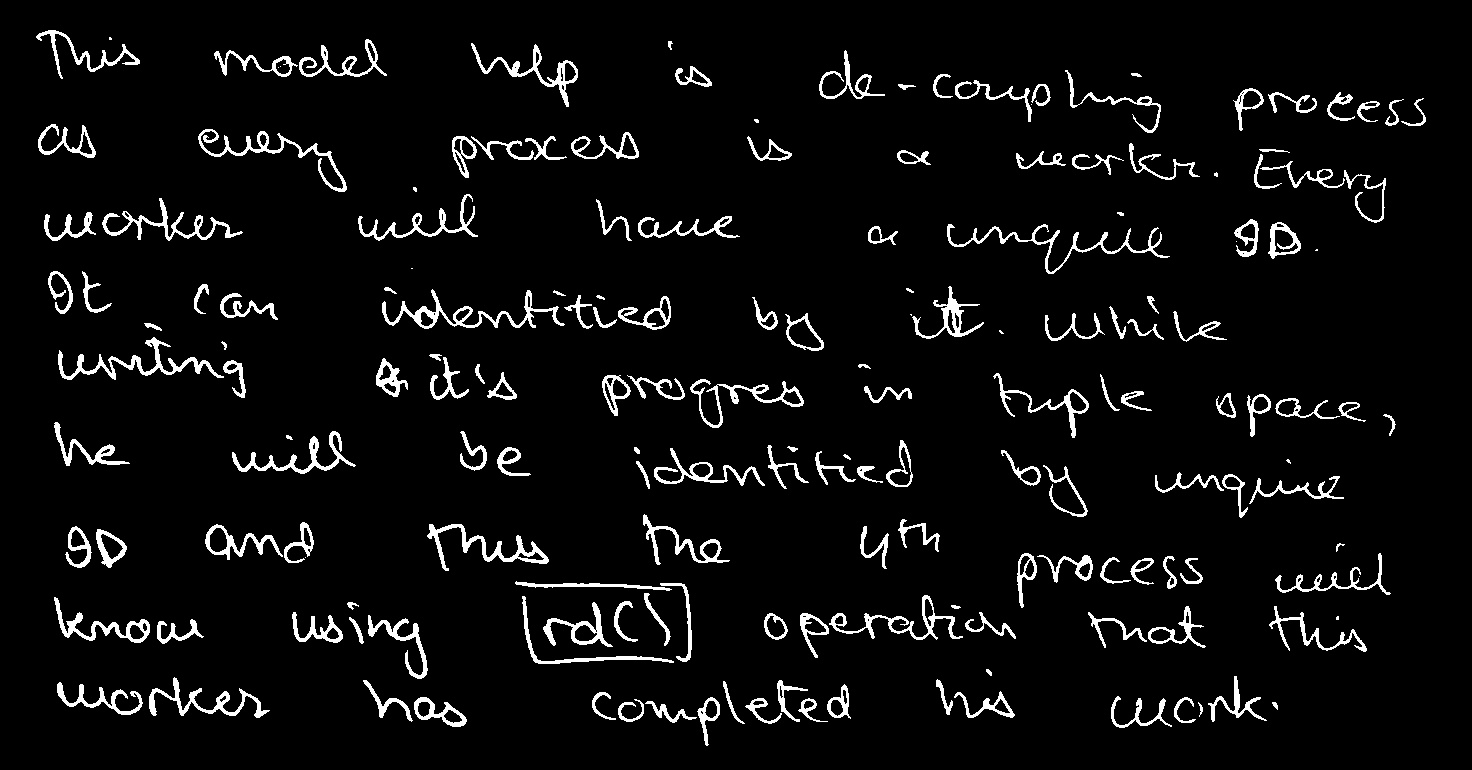 This model help is de-coupling process
as every process is a worker. Every
worker will have a unquie ID.
It can identified by it. While
writing it's progres in tuple space,
he will be identified by unquie
ID and thus the 4th process will
know using rd() operation that this
worker has completed his work.